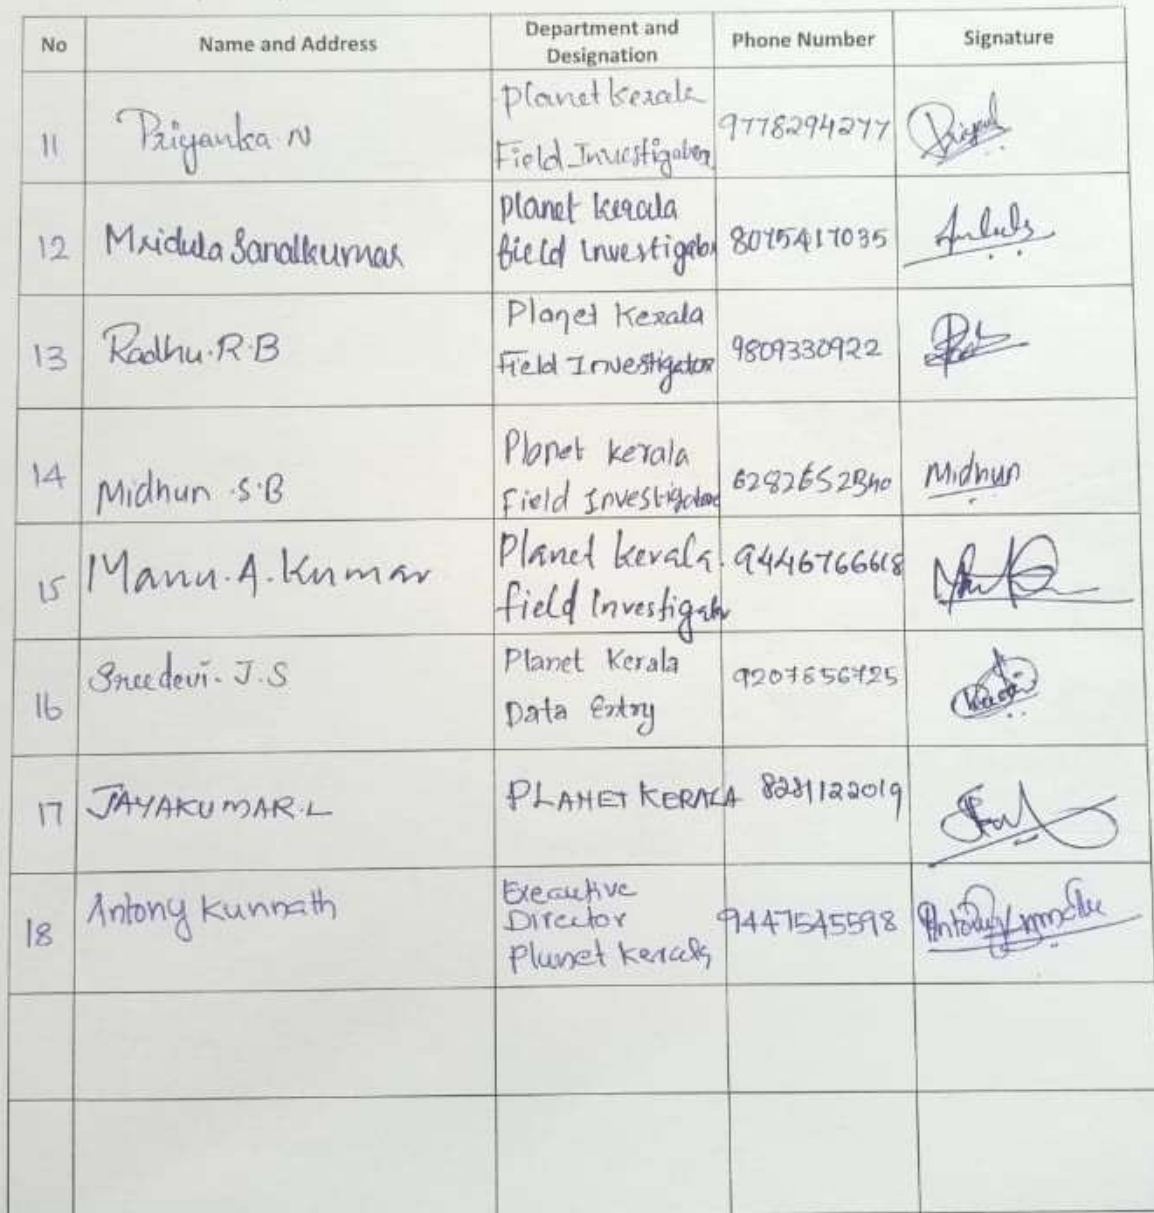 No Name and Address Department and Designation Phone Number Signature
11 Priyanka N Planet Kerala Field Investigator 9778294277
12 Mridula Sanalkumar Planet Kerala field Investigator 8075417035
13 Radhu.R.B Planet Kerala Field Investigator 9809330922
14 Midhun .S.B Planet Kerala Field Investigator Midhun
15 Manu.A.Kumar Planet Kerala. field Investigator 9446766618
16 Sreedevi.J.S Planet Kerala Data Entry 9207656725
17 JAYAKUMAR.L PLANET KERALA 8281122019
18 Antony Kunnath Executive Director Planet Kerala 9447545598